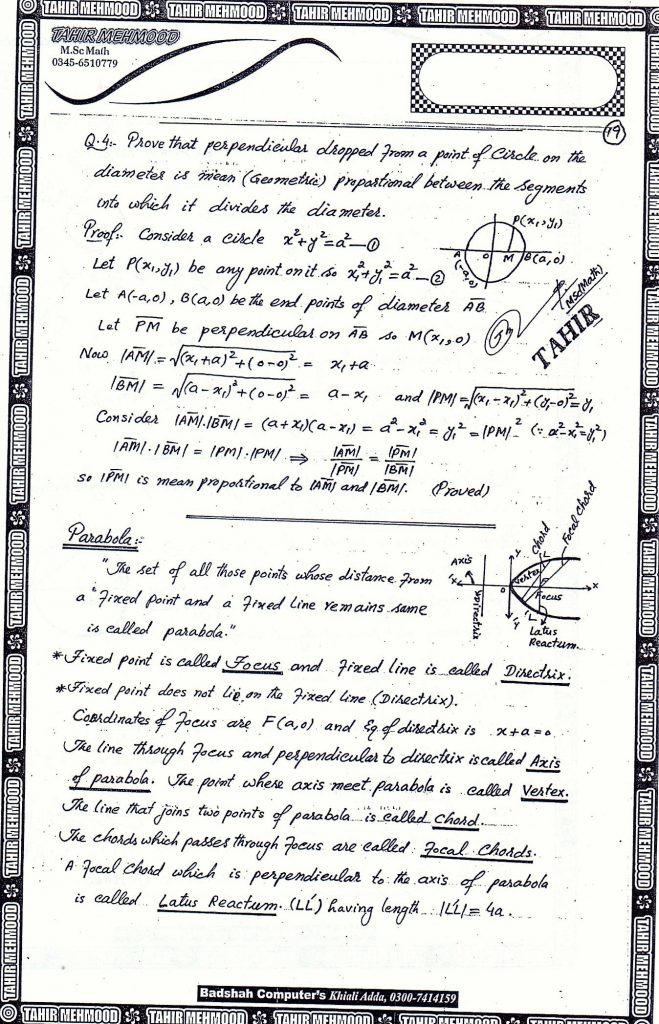 TAHIR MEHMOOD TAHIR MEHMOOD TAHIR MEHMOOD TAHIR MEHMOOD TAHIR MEHMOOD
TAHIR MEHMOOD
M.Sc Math
0345-6510779
19
Q.4:- Prove that perpendicular dropped from a point of Circle on the
diameter is mean (Geometric) proportional between the segments
into which it divides the diameter.
Proof:- Consider a circle x²+y²=a² —①
Let P(x₁,y₁) be any point on it so x₁²+y₁²=a² —②
Let A(-a,0), B(a,0) be the end points of diameter AB
Let PM be perpendicular on AB so M(x₁,0)
P(x₁,y₁)
A O M B(a,0)
(-a,0)
MSc(Math)
TAHIR
Now |AM|=√(x₁+a)²+(0-0)² = x₁+a
|BM| = √(a-x₁)²+(0-0)² = a-x₁ and |PM|=√(x₁-x₁)²+(y₁-0)²=y₁
Consider |AM|.|BM| = (a+x₁)(a-x₁) = a²-x₁² = y₁² = |PM|² (∵ a²-x₁²=y₁²)
|AM|.|BM| = |PM|.|PM| ⇒ |AM|/|PM| = |PM|/|BM|
so |PM| is mean proportional to |AM| and |BM|. (Proved)
Parabola:-
"The set of all those points whose distance from
a "fixed point and a fixed Line remains same
is called parabola."
Axis
Directrix
Vertex
Chord
Focal Chord
Focus
Latus
Reactum.
*Fixed point is called Focus and fixed line is called Directrix.
*Fixed point does not lie on the fixed Line (Directrix).
Coordinates of focus are F(a,0) and Eq of directrix is x+a=0
The line through focus and perpendicular to directrix is called Axis
of parabola. The point where axis meet parabola is called Vertex.
The line that joins two points of parabola is called Chord.
The chords which passes through focus are called Focal Chords.
A focal chord which is perpendicular to the axis of parabola
is called Latus Reactum. (LĹ) having length |LĹ|= 4a.
Badshah Computer's Khiali Adda, 0300-7414159
TAHIR MEHMOOD TAHIR MEHMOOD TAHIR MEHMOOD TAHIR MEHMOOD TAHIR MEHMOOD